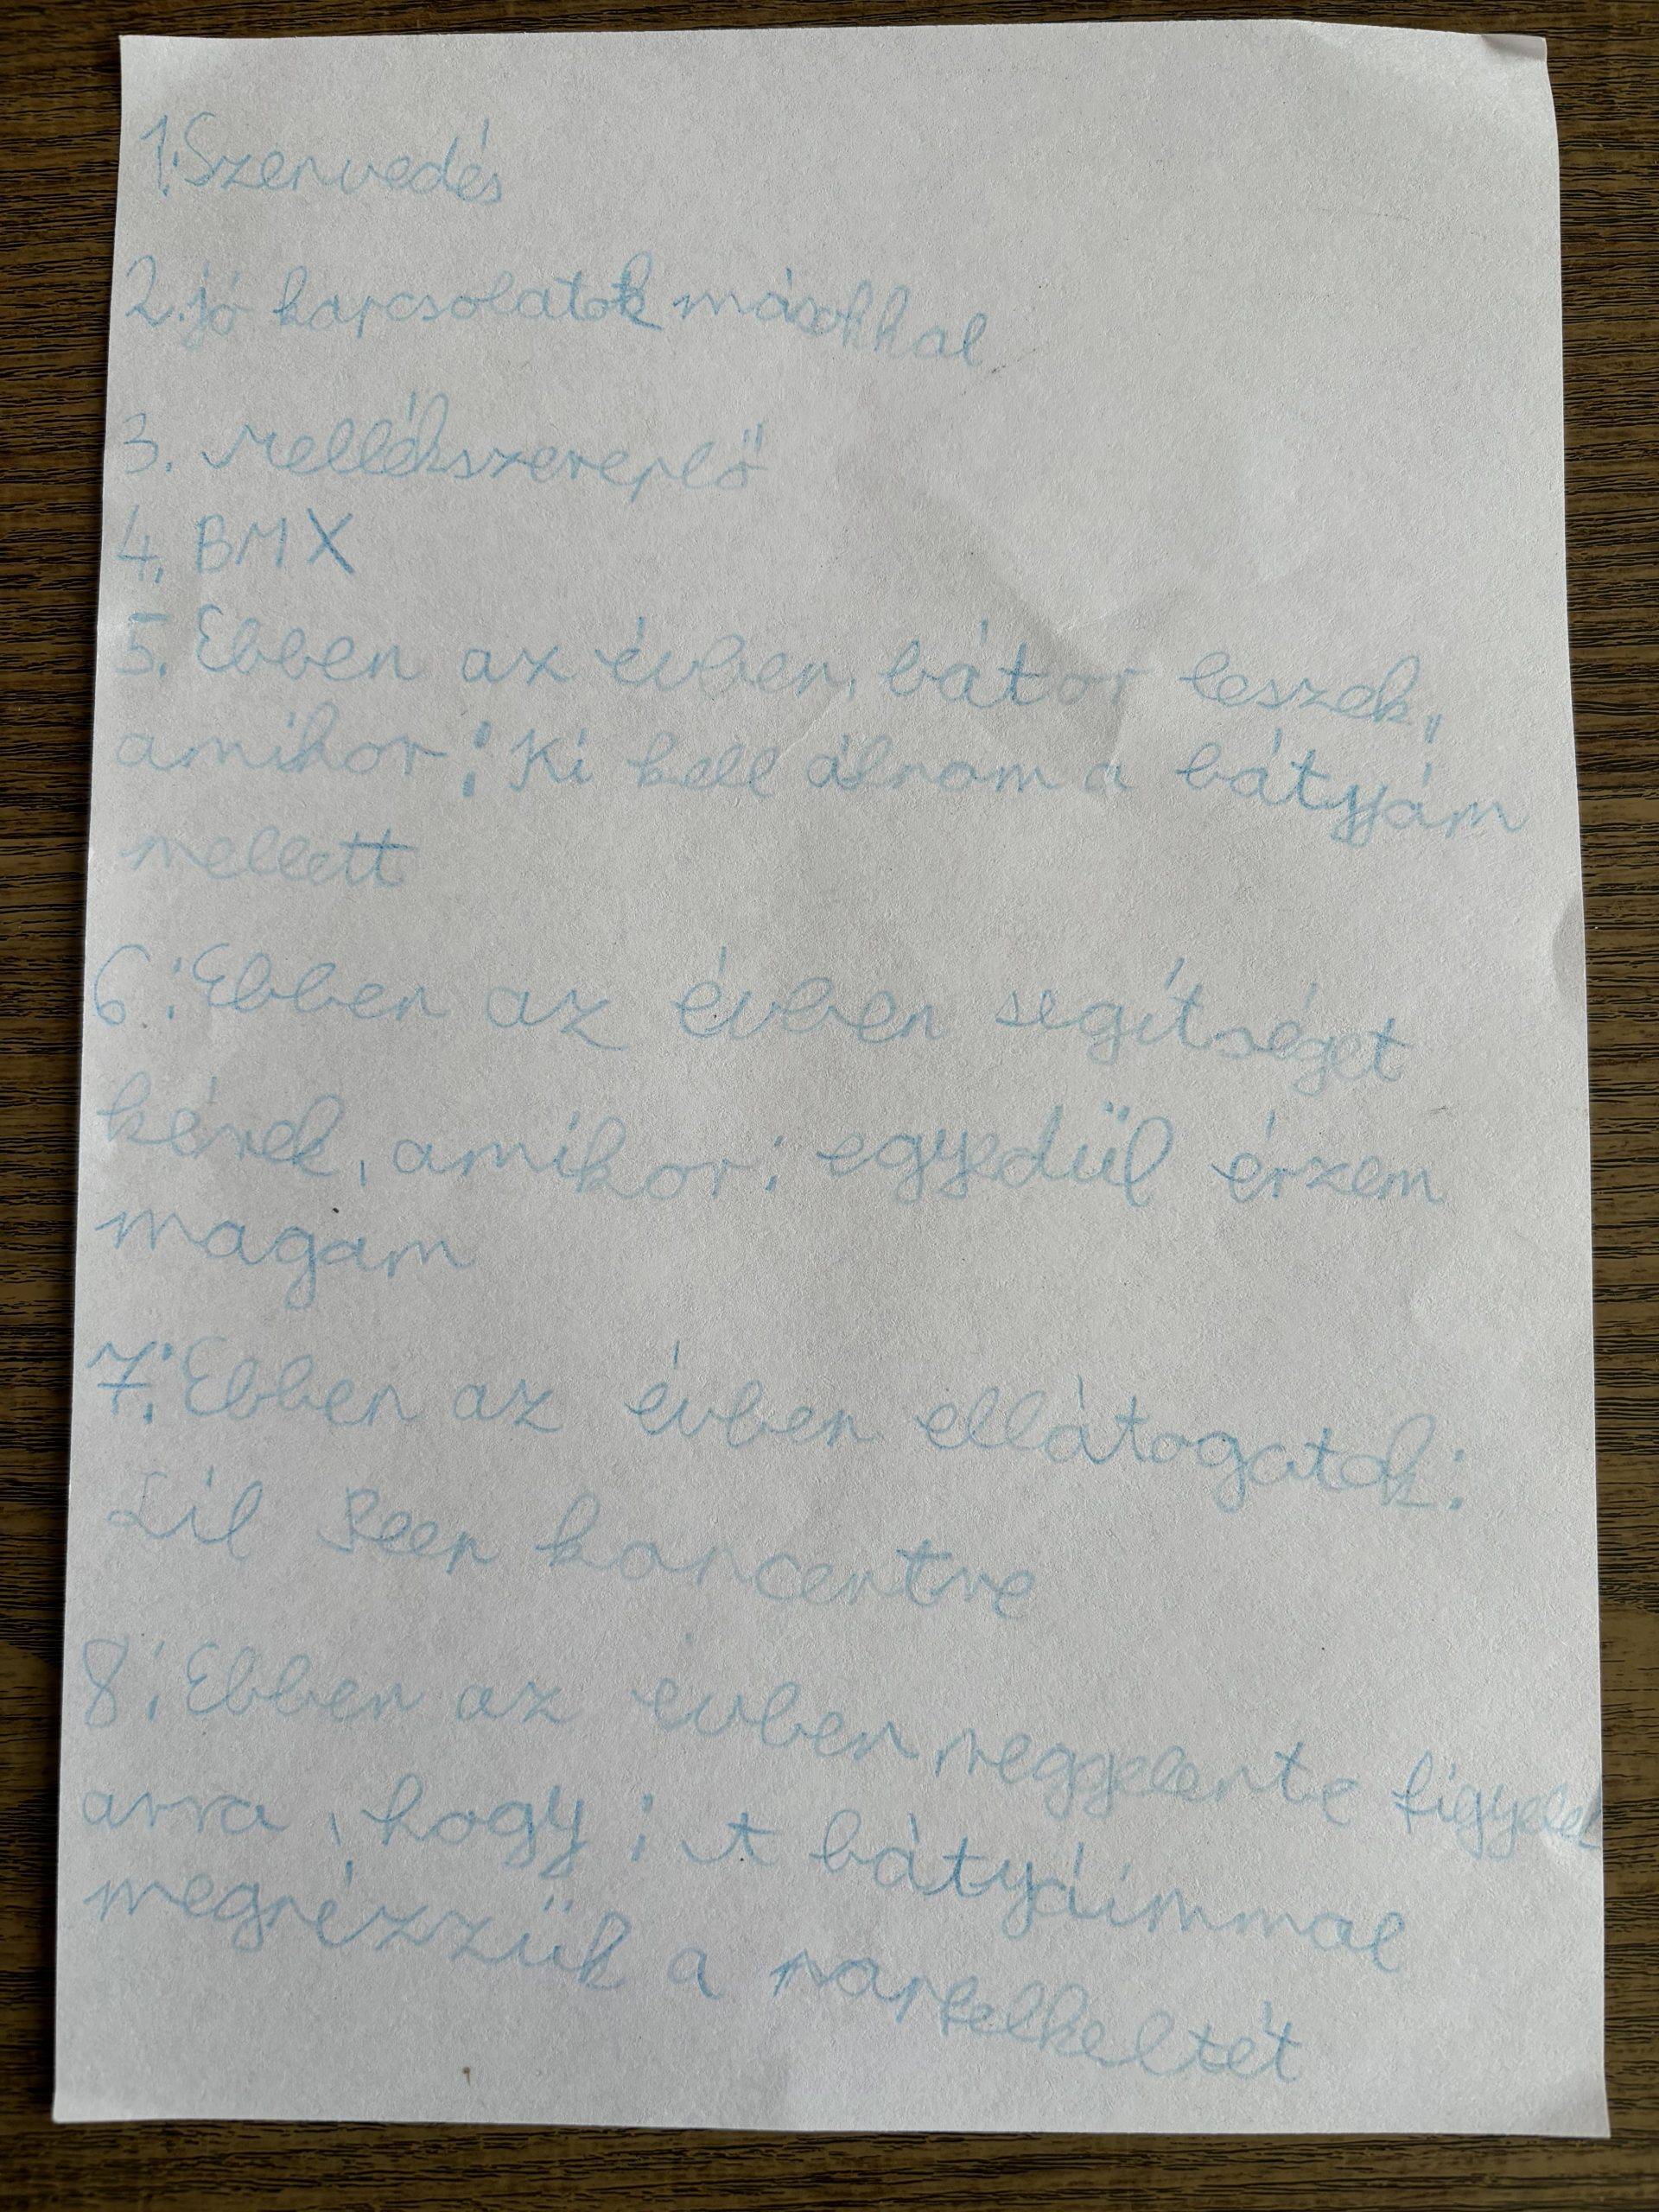 1. Szenvedés
2. jó kapcsolatok másokkal
3. Mellékszereplő
4. BMX
5. Ebben az évben, bátor leszek,
amikor: Ki kell álnom a bátyjám
mellett
6. Ebben az évben segítséget
kérek, amikor: egyedül érzem
magam
7. Ebben az évben ellátogatok:
Lil Peen koncertre
8. Ebben az évben reggelente figyelek
arra, hogy: A bátyáimmal
megnézzük a napfelkeltét